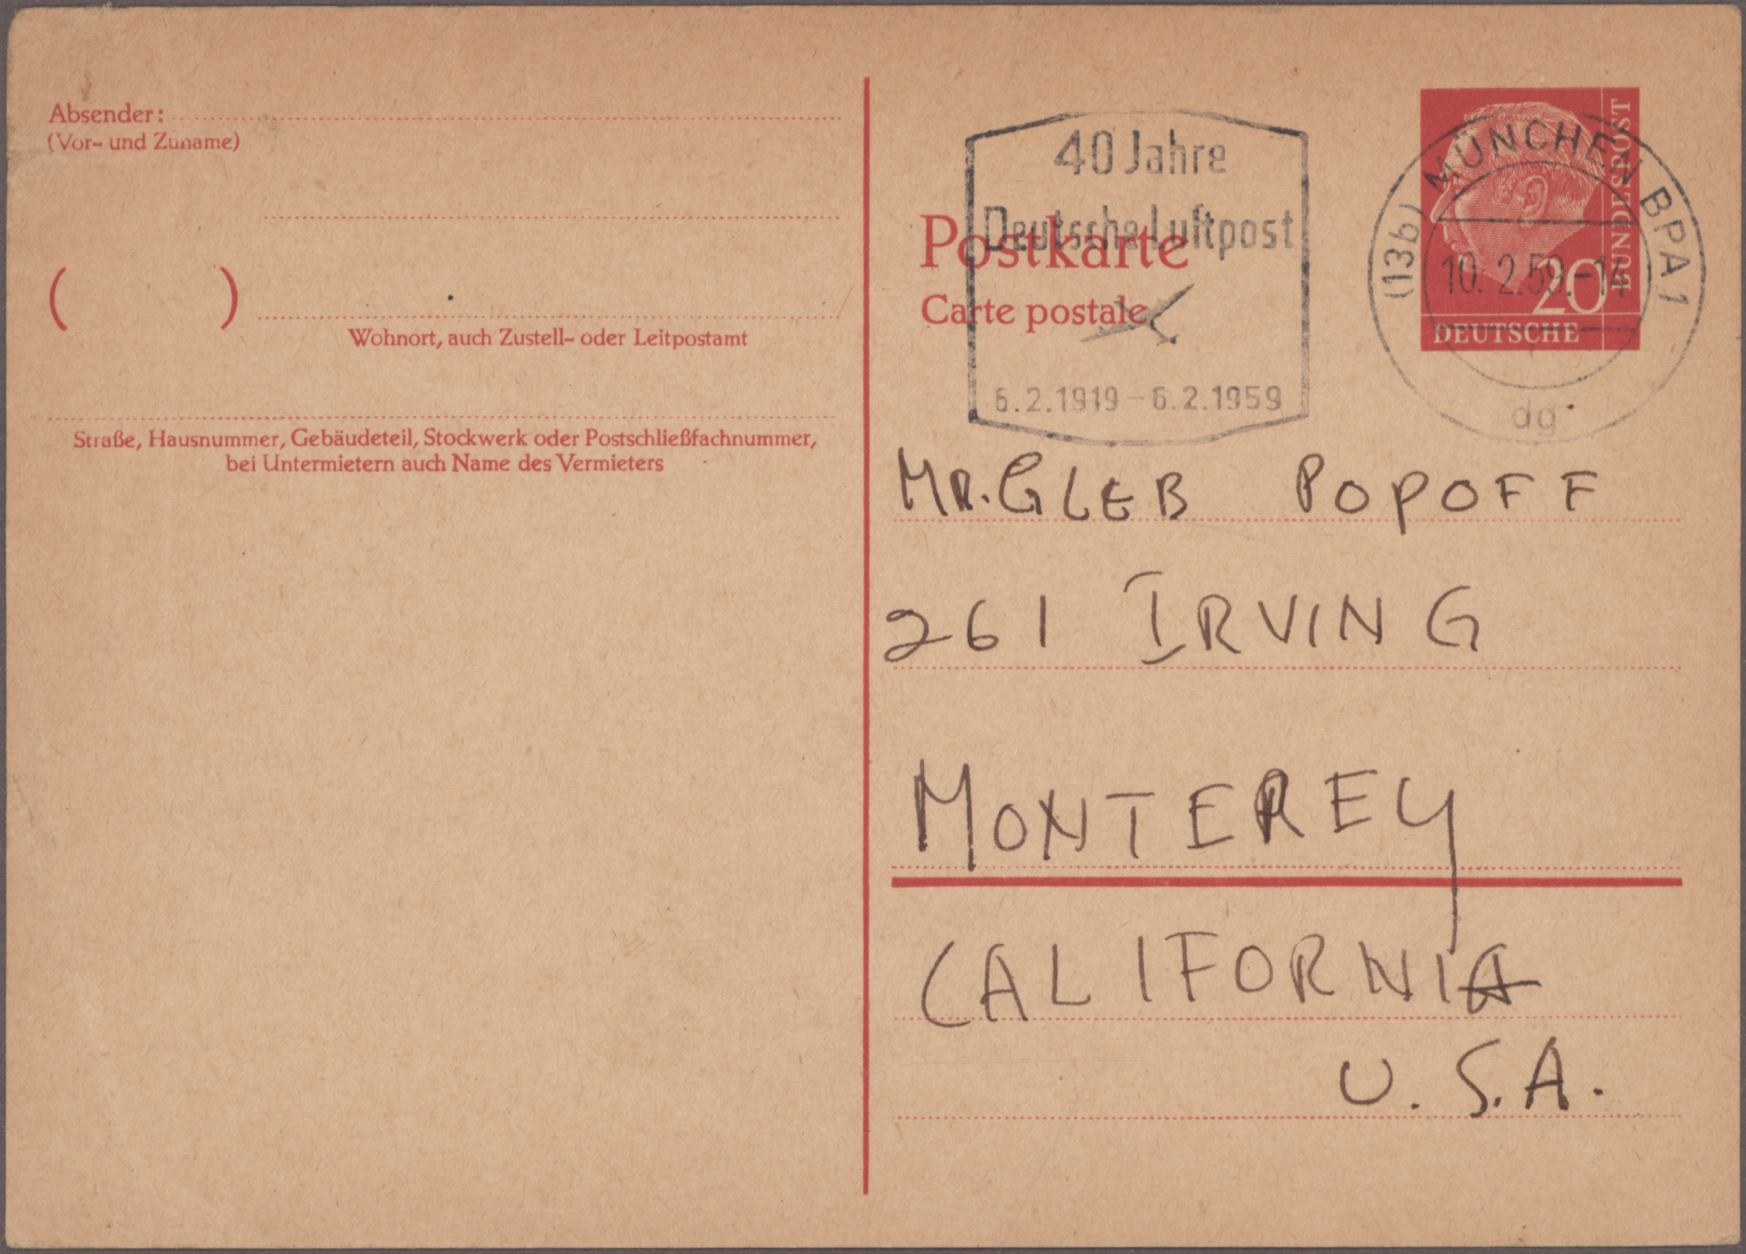 Absender:
(Vor- und Zuname)
( )
Wohnort, auch Zustell- oder Leitpostamt
Straße, Hausnummer, Gebäudeteil, Stockwerk oder Postschließfachnummer,
bei Untermietern auch Name des Vermieters
40 Jahre
Deutsche Luftpost
6.2.1919 - 6.2.1959
Postkarte
Carte postale
(13b) MÜNCHEN BPA 1
10. 2.59.-14
dg
20
BUNDESPOST
DEUTSCHE
MR. GLEB POPOFF
261 IRVING
MONTEREY
CALIFORNIA
U. S. A.